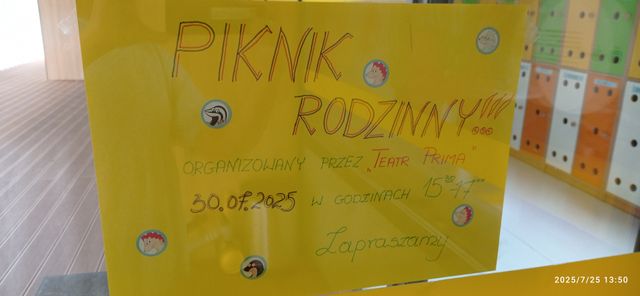 PIKNIK
RODZINNY!!!
ORGANIZOWANY PRZEZ „TEATR PRIMA"
30.07.2025 W GODZINACH 15⁰⁰-17⁰⁰
Zapraszamy
2025/7/25 13:50